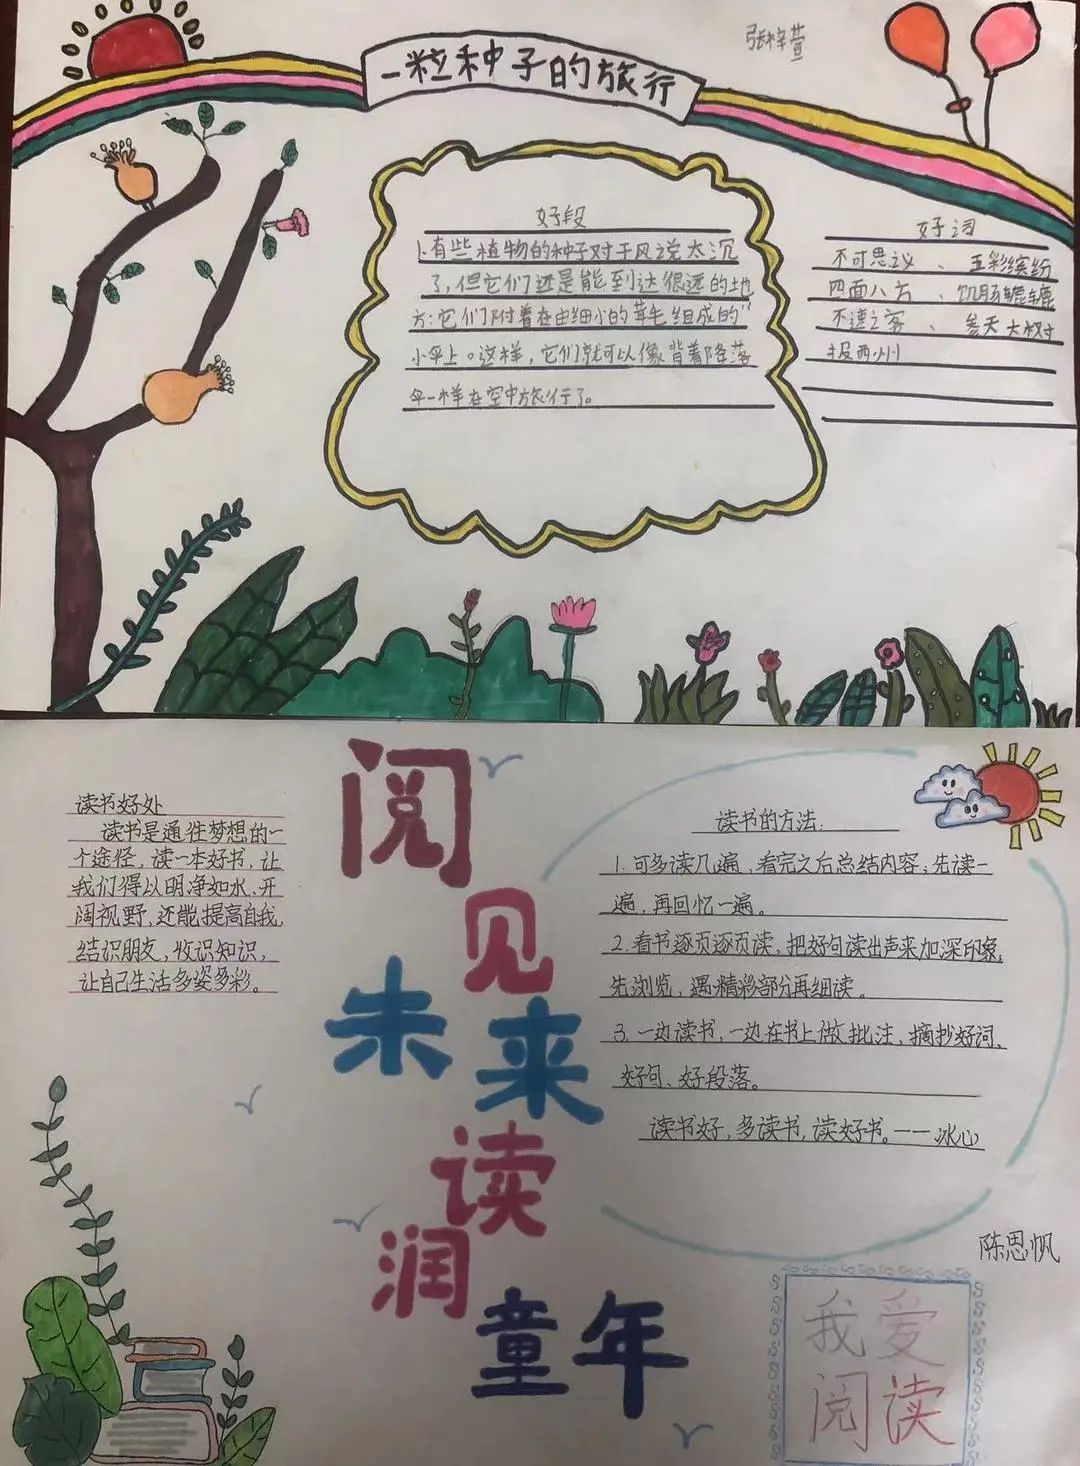 一粒种子的旅行
张梓萱
好段
1.有些植物的种子对于风说太沉
了,但它们还是能到达很远的地
方:它们附着在由细小的茸毛组成的“
小伞上。这样,它们就可以像背着降落
伞一样在空中旅行了。
好词
不可思议、五彩缤纷
四面八方、饥肠辘辘
不速之客、参天大树
报西州
阅
见
未来
读
润
童年
读书好处
读书是通往梦想的一
个途径,读一本好书,让
我们得以明净如水,开
阔视野,还能提高自我,
结识朋友,收识知识,
让自己生活多姿多彩。
读书的方法:
1.可多读几遍,看完之后总结内容;先读一
遍,再回忆一遍。
2.看书逐页逐页读,把好句读出声来加深印象;
先浏览,遇精彩部分再细读。
3.一边读书,一边在书上做批注,摘抄好词、
好句、好段落。
读书好,多读书,读好书。——冰心
陈思帆
我爱
阅读